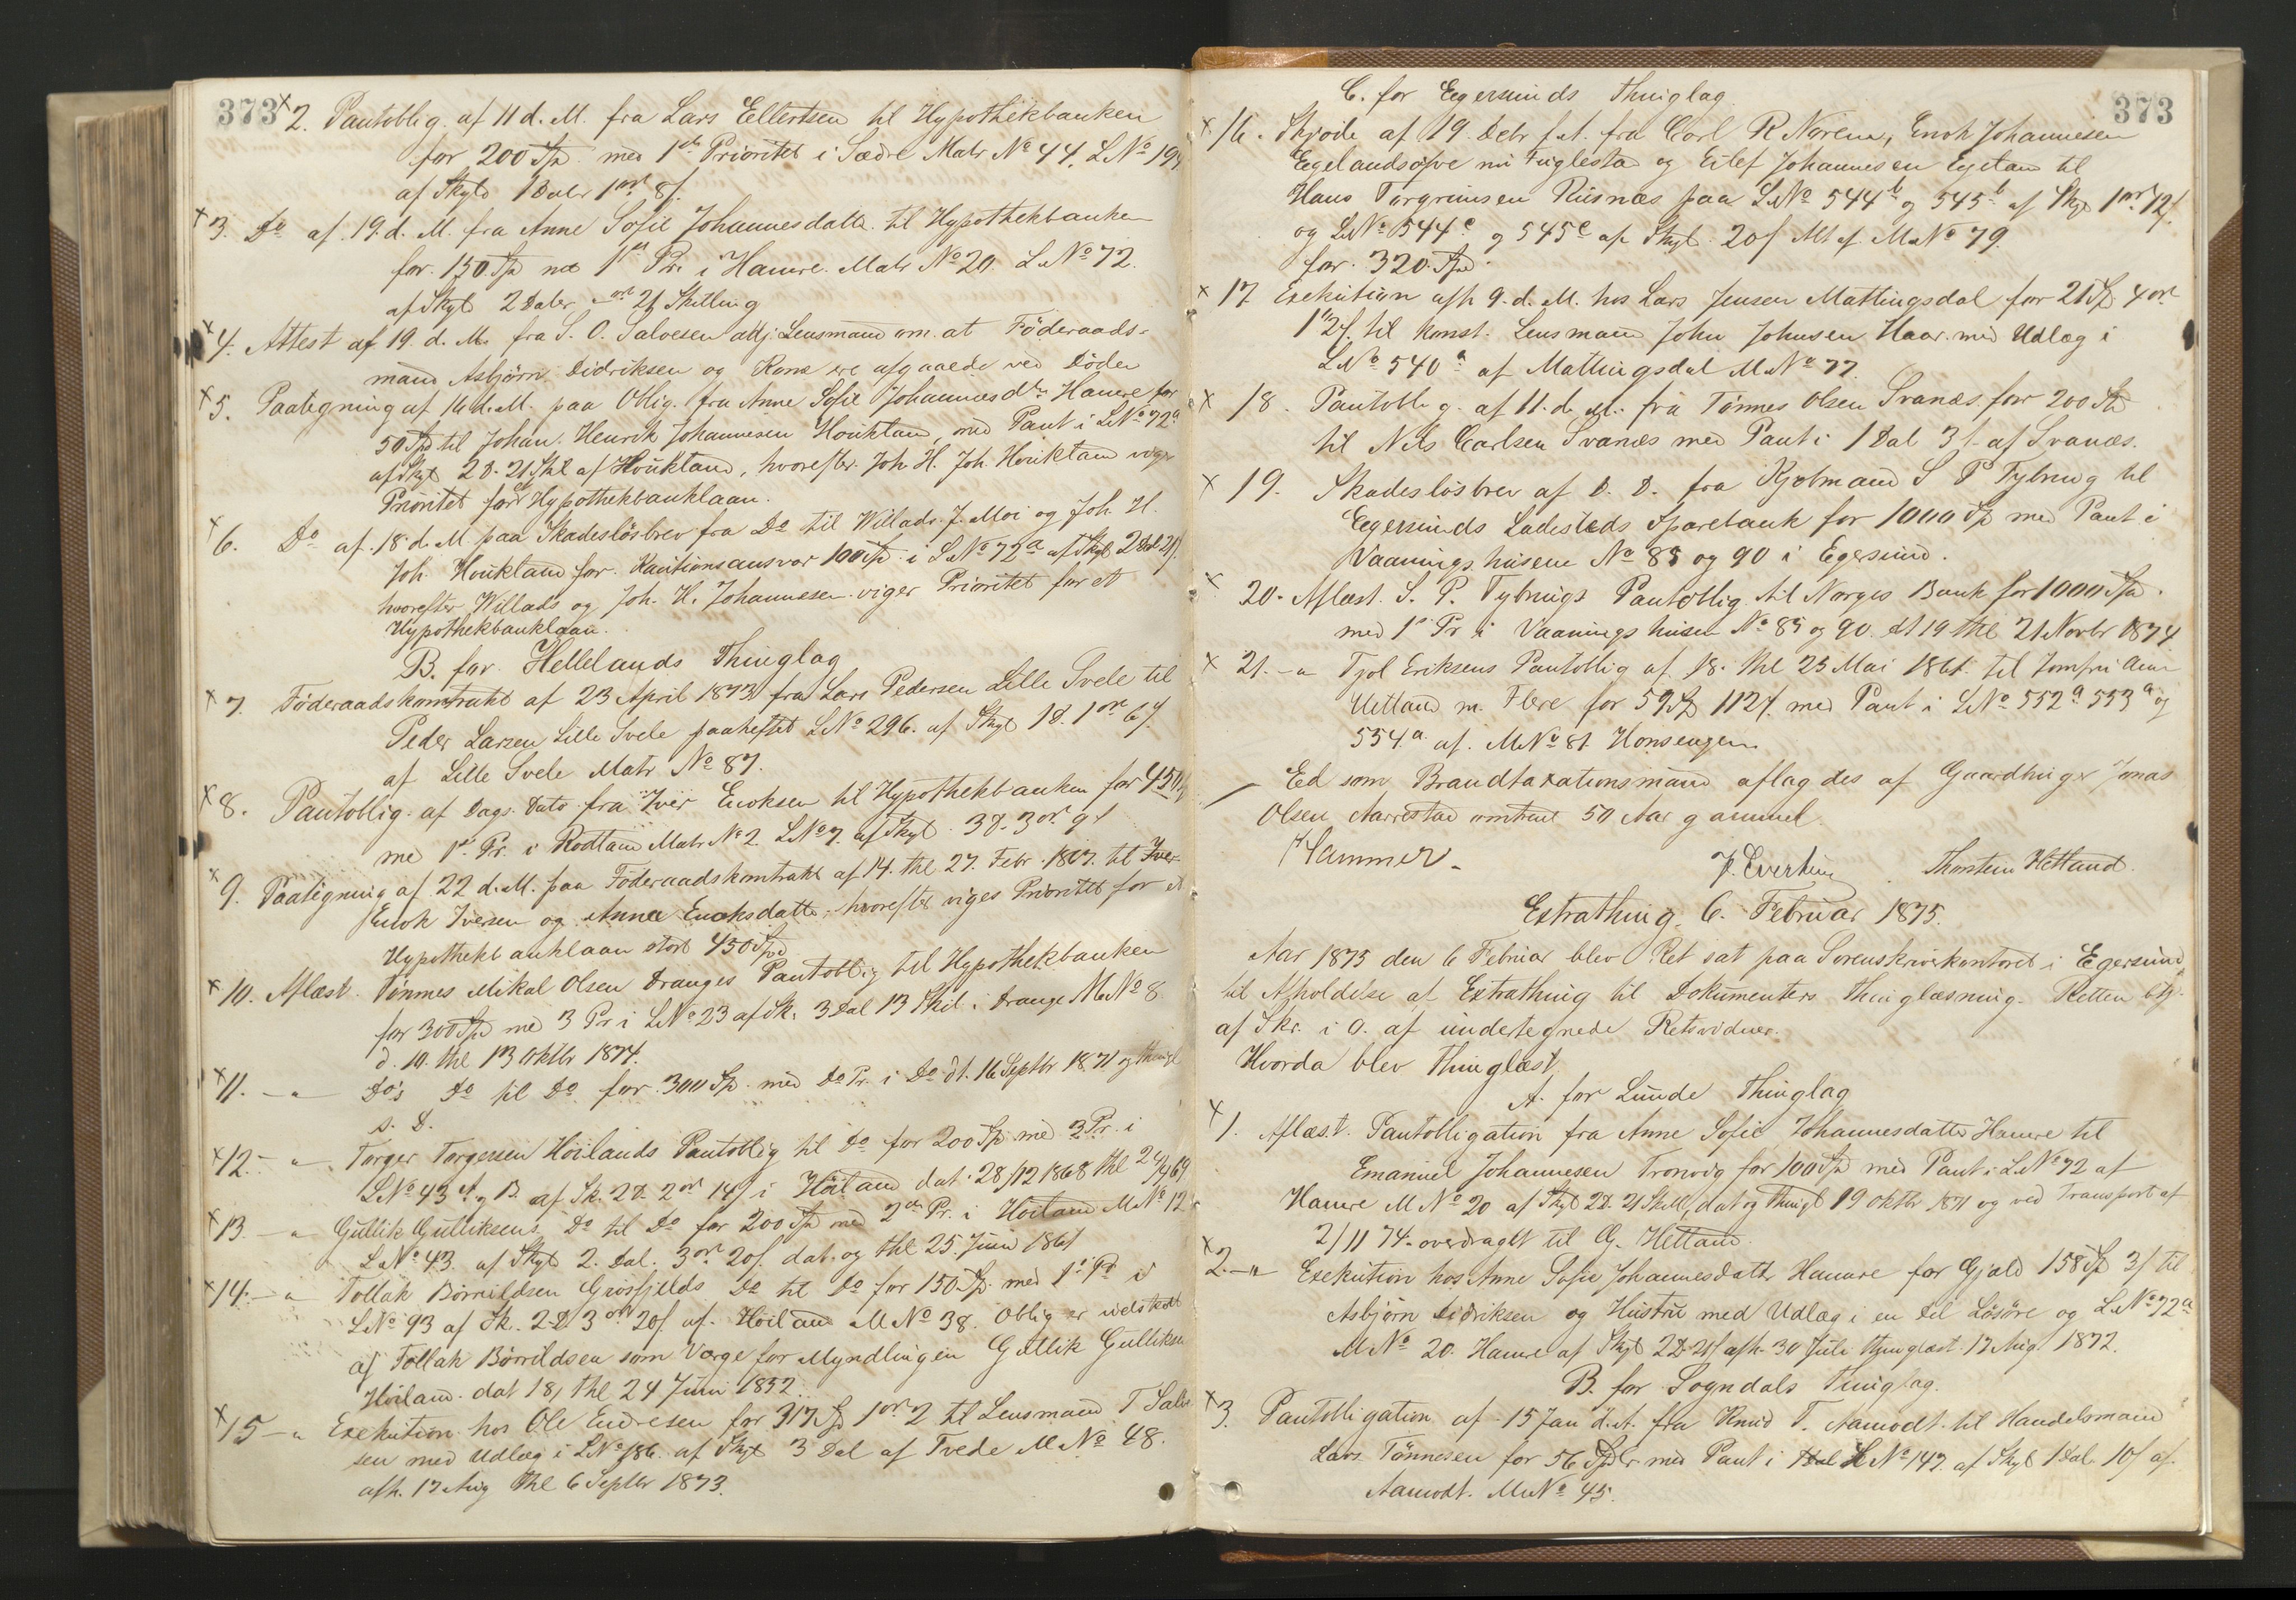 373
2. Pantoblig. af 11 d. M. fra Lars Ellertsen til Hypothekbanken
for 200 Spd. med 1ste Prioritet i Sædre Matr No 44. LNo 199
af Skyld 1 Daler 1 ort 8 s.
3. Do af 19. d. M. fra Anne Sofie Johannesdatter til Hypothekbanken
for 150 Spd med 1ste Pr. i Hamre. Matr No 20. LNo 72.
af Skyld 2 Daler ort 21 Skilling
4. Attest af 19. d. M. fra S. O. Salvesen adj. Lensmand om at Föderaads-
mand Asbjörn Didriksen og Kone ere afgaaede ved Döden
5. Paategning af 16 d. M. paa Oblig. fra Anne Sofie Johannesdtr Hamre for
50 Spd til Johan Henrik Johannesen Houkland, med Pant i LNo 72a
af Skyld 2 D. 21 Skl af Houkland, hvorefter Joh H. Joh. Houkland viger
Prioritet for et Hypothekbanklaan.
6. Do af 18. d. M paa Skadeslösbrev fra Do til Willads J. Moi og Joh. H.
Joh. Houkland for Kautionsansvar 100 Spd i LNo 72a af Skyld 2 Dal 21 s.
hvorefter Willads og Joh. H. Johannesen viger Prioritet for et
Hypothekbanklaan.
B. for Hellelands Thinglag
7. Föderaadskontrakt af 23 April 1873 fra Lars Pedersen Lille Svele til
Peder Larsen Lille Svele paaheftet LNo 296. af Skyld 1 D. 1 ort 6 s.
af Lille Svele Matr No 87.
8. Pantoblig. af Dags Dato fra Iver Enoksen til Hypothekbanken for 450
med 1ste Pr. i Rodland Matr No 2. LNo 7. af Skyld 3 D. 3 ort 9 s
9. Paategning af 22 d. M. paa Föderaadskontrakt af 14. thl 27. Febr. 1867. til Iver
Enok Iversen og Anna Enoksdatter, hvorefter viges Prioritet for et
Hypothekbanklaan stort 450 Spd
10. Aflæst. Tönnes Mikal Olsen Dranges Pantoblig til Hypothekbanken
for 300 Spd med 3 Pr i LNo 23 af Sk. 3 Dal 13 Skil. i Drange MNo 8
d. 10. thl 13 Oktbr 1874.
11. — " — Do's Do til Do for 300 Sp. med Do Pr. i Do dt. 16 Septbr 1871 og thingl
s. D.
12. — " — Torger Torgersen Höilands Pantoblig til Do for 200 Spd med 3 Pr. i
LNo 43 A og B af Sk. 2 D. 2 ort 14 s i Höiland dat. 28/12 1868 thl 24/4 69
13. — " Gullik Gulliksens Do til Do for 200 Spd med 2den Pr. i Höiland MNo 12
LNo 43. af Skyld 2. Dal. 3 ort 20 s. dat. og thl 25 Juni 1861
14. — " Tollak Börrildsen Grösfjelds Do til Do for 150 Sp. med 1ste Pr i
LNo 93 af Sk. 2 D. 3 ort 20 s. af Höiland MNo 38. Oblig er udstedt
af Tollak Börrildsen som Værge for Myndlingen Gullik Gulliksen
Höiland. dat 18, thl 24 Juni 1852.
15 — " Exekution hos Ole Endresen for 317 Spd 1 ort 2 til Lensmand T Salve
sen med Udlæg i LNo 186. af Skyld 3 Dal af Tvede MNo 48.
afh. 17 Aug thl 6 Septbr 1873.
373
C. for Egersunds Thinglag
16. Skjöde af 19. Debr f. A. fra Carl R Noren, Enok Johannesen
Egelandsöfre nu Fuglestad og Eilef Johannesen Egeland til
Hans Torgrimsen Rusnæs paa LNo 544b og 545b af Skyld 1 ort 12 s.
og LNo 544c og 545c af Skyld 20 s Alt af MNo 79.
for 320 Spd.
17 Exekution afh 9. d. M. hos Lars Jensen Mattingsdal for 21 Spd 4 ort
12 s. til konst. Lensmand John Johnsen Haar med Udlæg i
LNo 540a af Mattingsdal MNo 77.
18. Pantoblig. af 11. d. M. fra Tönnes Olsen Svanæs for 200 Spd
til Nils Carlsen Svanæs med Pant i 1 Dal 3 s. af Svanæs.
19. Skadeslösbrev af D. D. fra Kjöbmand S P Tybring til
Egersunds Ladesteds Sparebank for 1000 Spd med Pant i
Vaaningshusene No 85 og 90 i Egersund.
20. Aflæst. S. P. Tybrings Pantoblig til Norges Bank for 1000 Spd.
med 1ste Pr i Vaaningshusene No 85 og 90. dt 19 thl 21 Novbr 1874
21. — " Tjöl Eriksens Pantoblig af 18. thl 23 Mai 1861. til Jomfru
m. Flere for 59 Spd 112 s. med Pant i LNo 552a 553a og
554a af MNo 81 Honsengen.
Ed som Brandtaxationsmand aflagdes af Gaardbruger Jonas
Olsen Aarrestad omtrent 50 Aar gammel.
Hammer.
P. Evertsen Thorstein Hetland.
Extrathing. 6. Februar 1875.
Aar 1875 den 6 Februar blev Ret sat paa Sorenskriverkontoret i Egersund
til Afholdelse af Extrathing til Dokumenters Thinglæsning. Retten btj.
af Skr. i O. af undertegnede Retsvidner.
Hvorda blev Thinglæst,
A. for Lunde Thinglag
1. Aflæst. Pantobligation fra Anne Sofie Johannesdatter Hamre til
Emanuel Johannesen Tronvig for 100 Spd med Pant i LNo 72 af
Hamre MNo 20 af Skyld 2 D. 21 Skill, dat og thingl 19 Oktbr 1871 og ved Transport af
2/11 74. overdraget til G. Hetland.
2. — " Exekution hos Anne Sofie Johannesdatter Hamre for Gjæld 158 Spd 3 s til
Asbjörn Didriksen og Hustru med Udlæg i en Del Lösöre og LNo 72a
MNo 20. Hamre af Skyld 2 D. 21 s afh. 30 Juli thinglæst 17 Aug 1872.
B. for Sogndals Thinglag.
3. Pantobligation af 15 Jan d. A. fra Knud T. Aamodt til Handelsmand
Lars Tönnesen for 56 Spdlr med Pant i LNo 147. af Skyld 1 Dal. 10 s af
Aamodt. MNo 45.